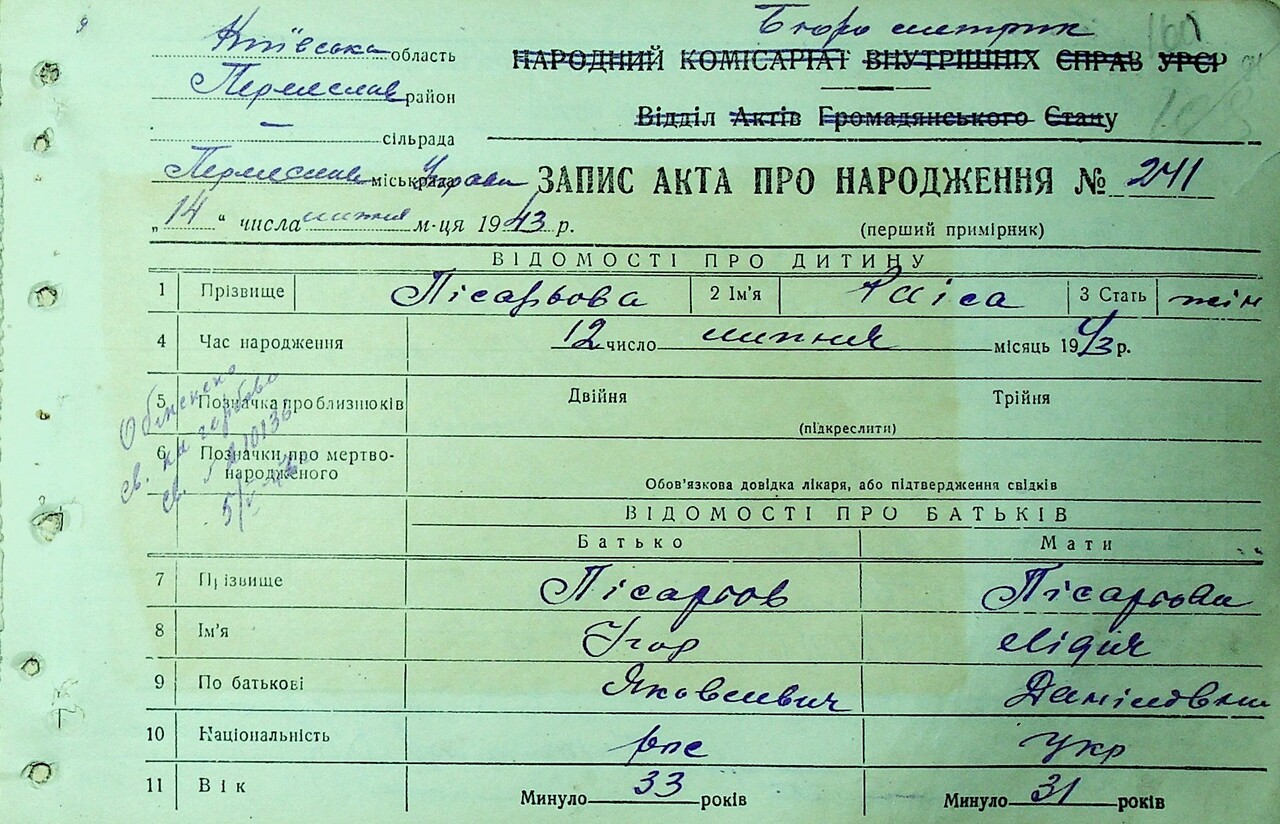 Київська область
Бюро метрик
НАРОДНИЙ КОМІСАРІАТ ВНУТРІШНІХ СПРАВ УРСР
Переяслав район
Відділ Актів Громадянського Стану
— сільрада
Переяслав міськрада Управа
ЗАПИС АКТА ПРО НАРОДЖЕННЯ № 241
„14“ числа липня м-ця 1943 р.
(перший примірник)
ВІДОМОСТІ ПРО ДИТИНУ
1 Прізвище Пісарьова 2 Ім'я Раіса 3 Стать жін
4 Час народження 12 число липня місяць 1943 р.
5 Позначка про близнюків Двійня Трійня
(підкреслити)
6 Позначки про мертво-
народженого
Обов'язкова довідка лікаря, або підтвердження свідків
ВІДОМОСТІ ПРО БАТЬКІВ
Батько Мати
7 Прізвище Пісарьов Пісарьова
8 Ім'я Ігор Лідія
9 По батькові Яковлевич Даніловна
10 Національність рус укр
11 Вік Минуло 33 років Минуло 31 років